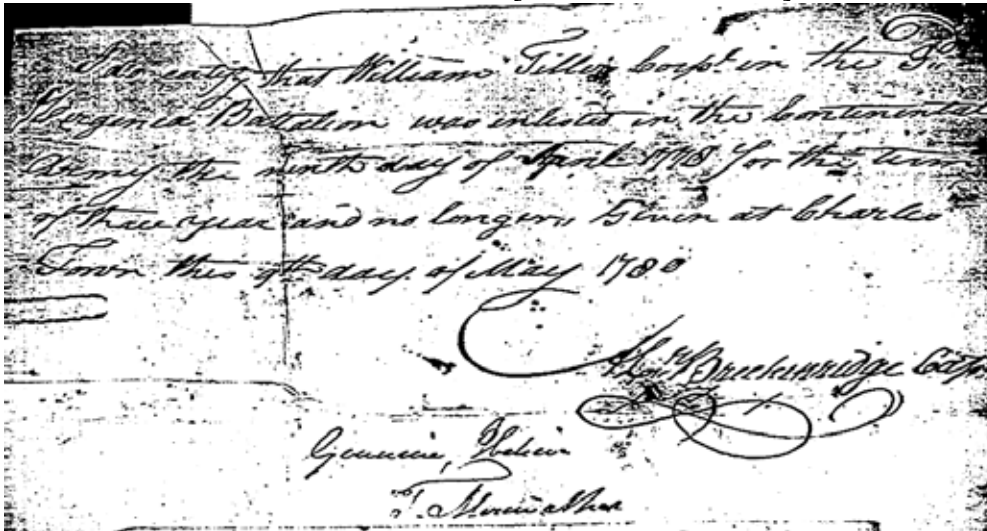 I do certify that William Tiller Corpl. in the 3d.
Virginia Battalion was inlisted in the Continental
Army the ninth day of April 1778 for the term
of three year and no longer, Given at Charles
Town this 9th day of May 1780
Breckinridge Capt
Genuine, I believe